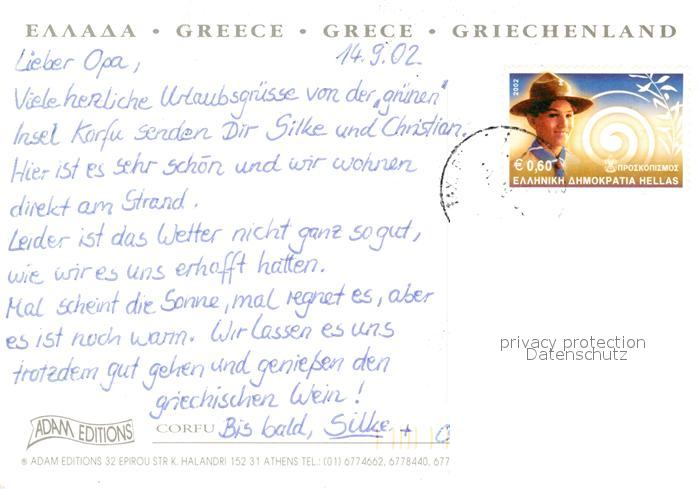 ΕΛΛΑΔΑ • GREECE • GRECE • GRIECHENLAND
Lieber Opa, 14.9.02
Viele herzliche Urlaubsgrüsse von der „grünen"
Insel Korfu senden Dir Silke und Christian.
Hier ist es sehr schön und wir wohnen
direkt am Strand.
Leider ist das Wetter nicht ganz so gut,
wie wir es uns erhofft hatten.
Mal scheint die Sonne, mal regnet es, aber
es ist noch warm. Wir lassen es uns
trotzdem gut gehen und genießen den
griechischen Wein!
Bis bald, Silke +
ADAM EDITIONS CORFU
® ADAM EDITIONS 32 EPIROU STR K. HALANDRI 152 31 ATHENS TEL.: (01) 6774662, 6778440, 677
2002
€ 0,60
ΠΡΟΣΚΟΠΙΣΜΟΣ
ΕΛΛΗΝΙΚΗ ΔΗΜΟΚΡΑΤΙΑ HELLAS
privacy protection
Datenschutz